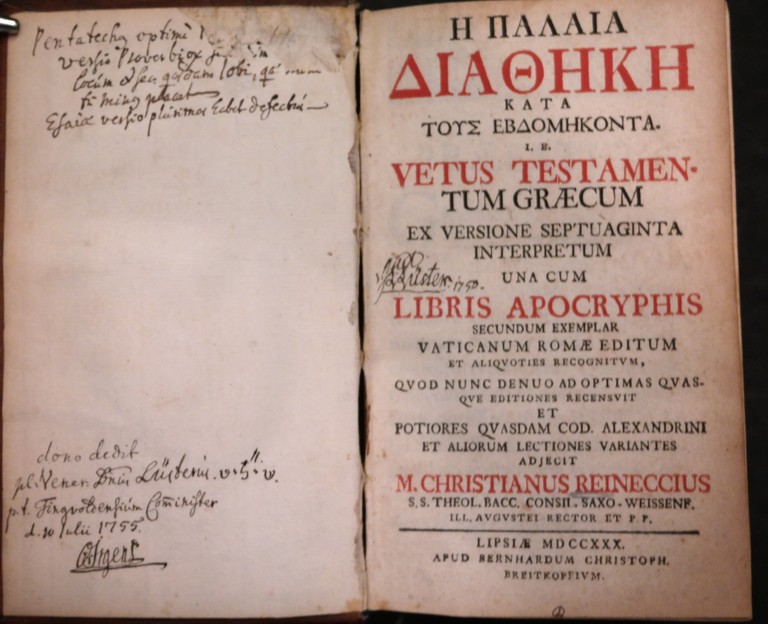 Pentateuchus optime
versio Proverbior
locum & seq. quædam Iobi, qæ
minus placet
Esaiæ versio plurimos habet defectus
dono dedit
pl. Vener. Dnus Lüsterus. v.
p. t. Tingvoldensium Com̅inister
d. 10 Iulii 1755.
Η ΠΑΛΑΙΑ
ΔΙΑΘΗΚΗ
ΚΑΤΑ
ΤΟΥΣ ΕΒΔΟΜΗΚΟΝΤΑ.
I. E.
VETUS TESTAMEN-
TUM GRÆCUM
EX VERSIONE SEPTUAGINTA
INTERPRETUM
UNA CUM
Lüster. 1750.
LIBRIS APOCRYPHIS
SECUNDUM EXEMPLAR
VATICANUM ROMÆ EDITUM
ET ALIQVOTIES RECOGNITVM,
QVOD NUNC DENUO AD OPTIMAS QVAS-
QVE EDITIONES RECENSVIT
ET
POTIORES QVASDAM COD. ALEXANDRINI
ET ALIORUM LECTIONES VARIANTES
ADJECIT
M. CHRISTIANUS REINECCIUS
S.S. THEOL. BACC. CONSIL. SAXO-WEISSENF.
ILL. AVGVSTEI RECTOR ET P. P.
LIPSIÆ MDCCXXX.
APUD BERNHARDUM CHRISTOPH.
BREITKOPFIVM.